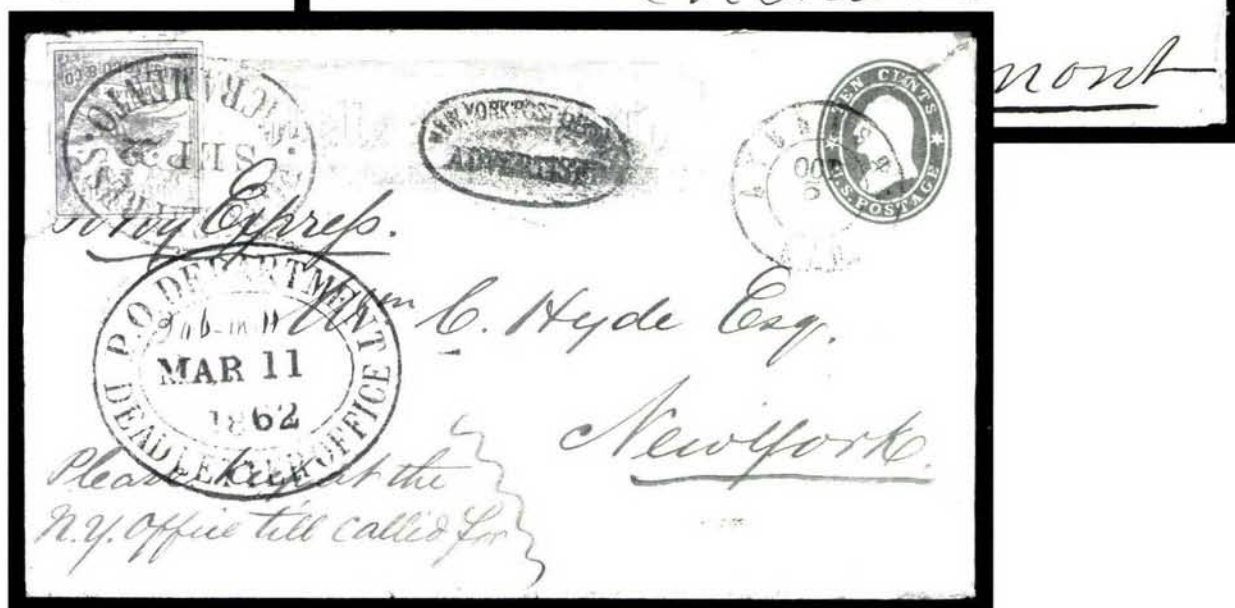 mont
SACRAMENTO
SEP 22
NEW YORK POST OFFICE
ADVERTISED
TEN CENTS
U.S. POSTAGE
OCT
Pony Express.
P.O. DEPARTMENT
MAR 11
1862
DEAD LETTER OFFICE
Wm C. Hyde Esq.
New York.
Please keep at the
N.Y. Office till called for